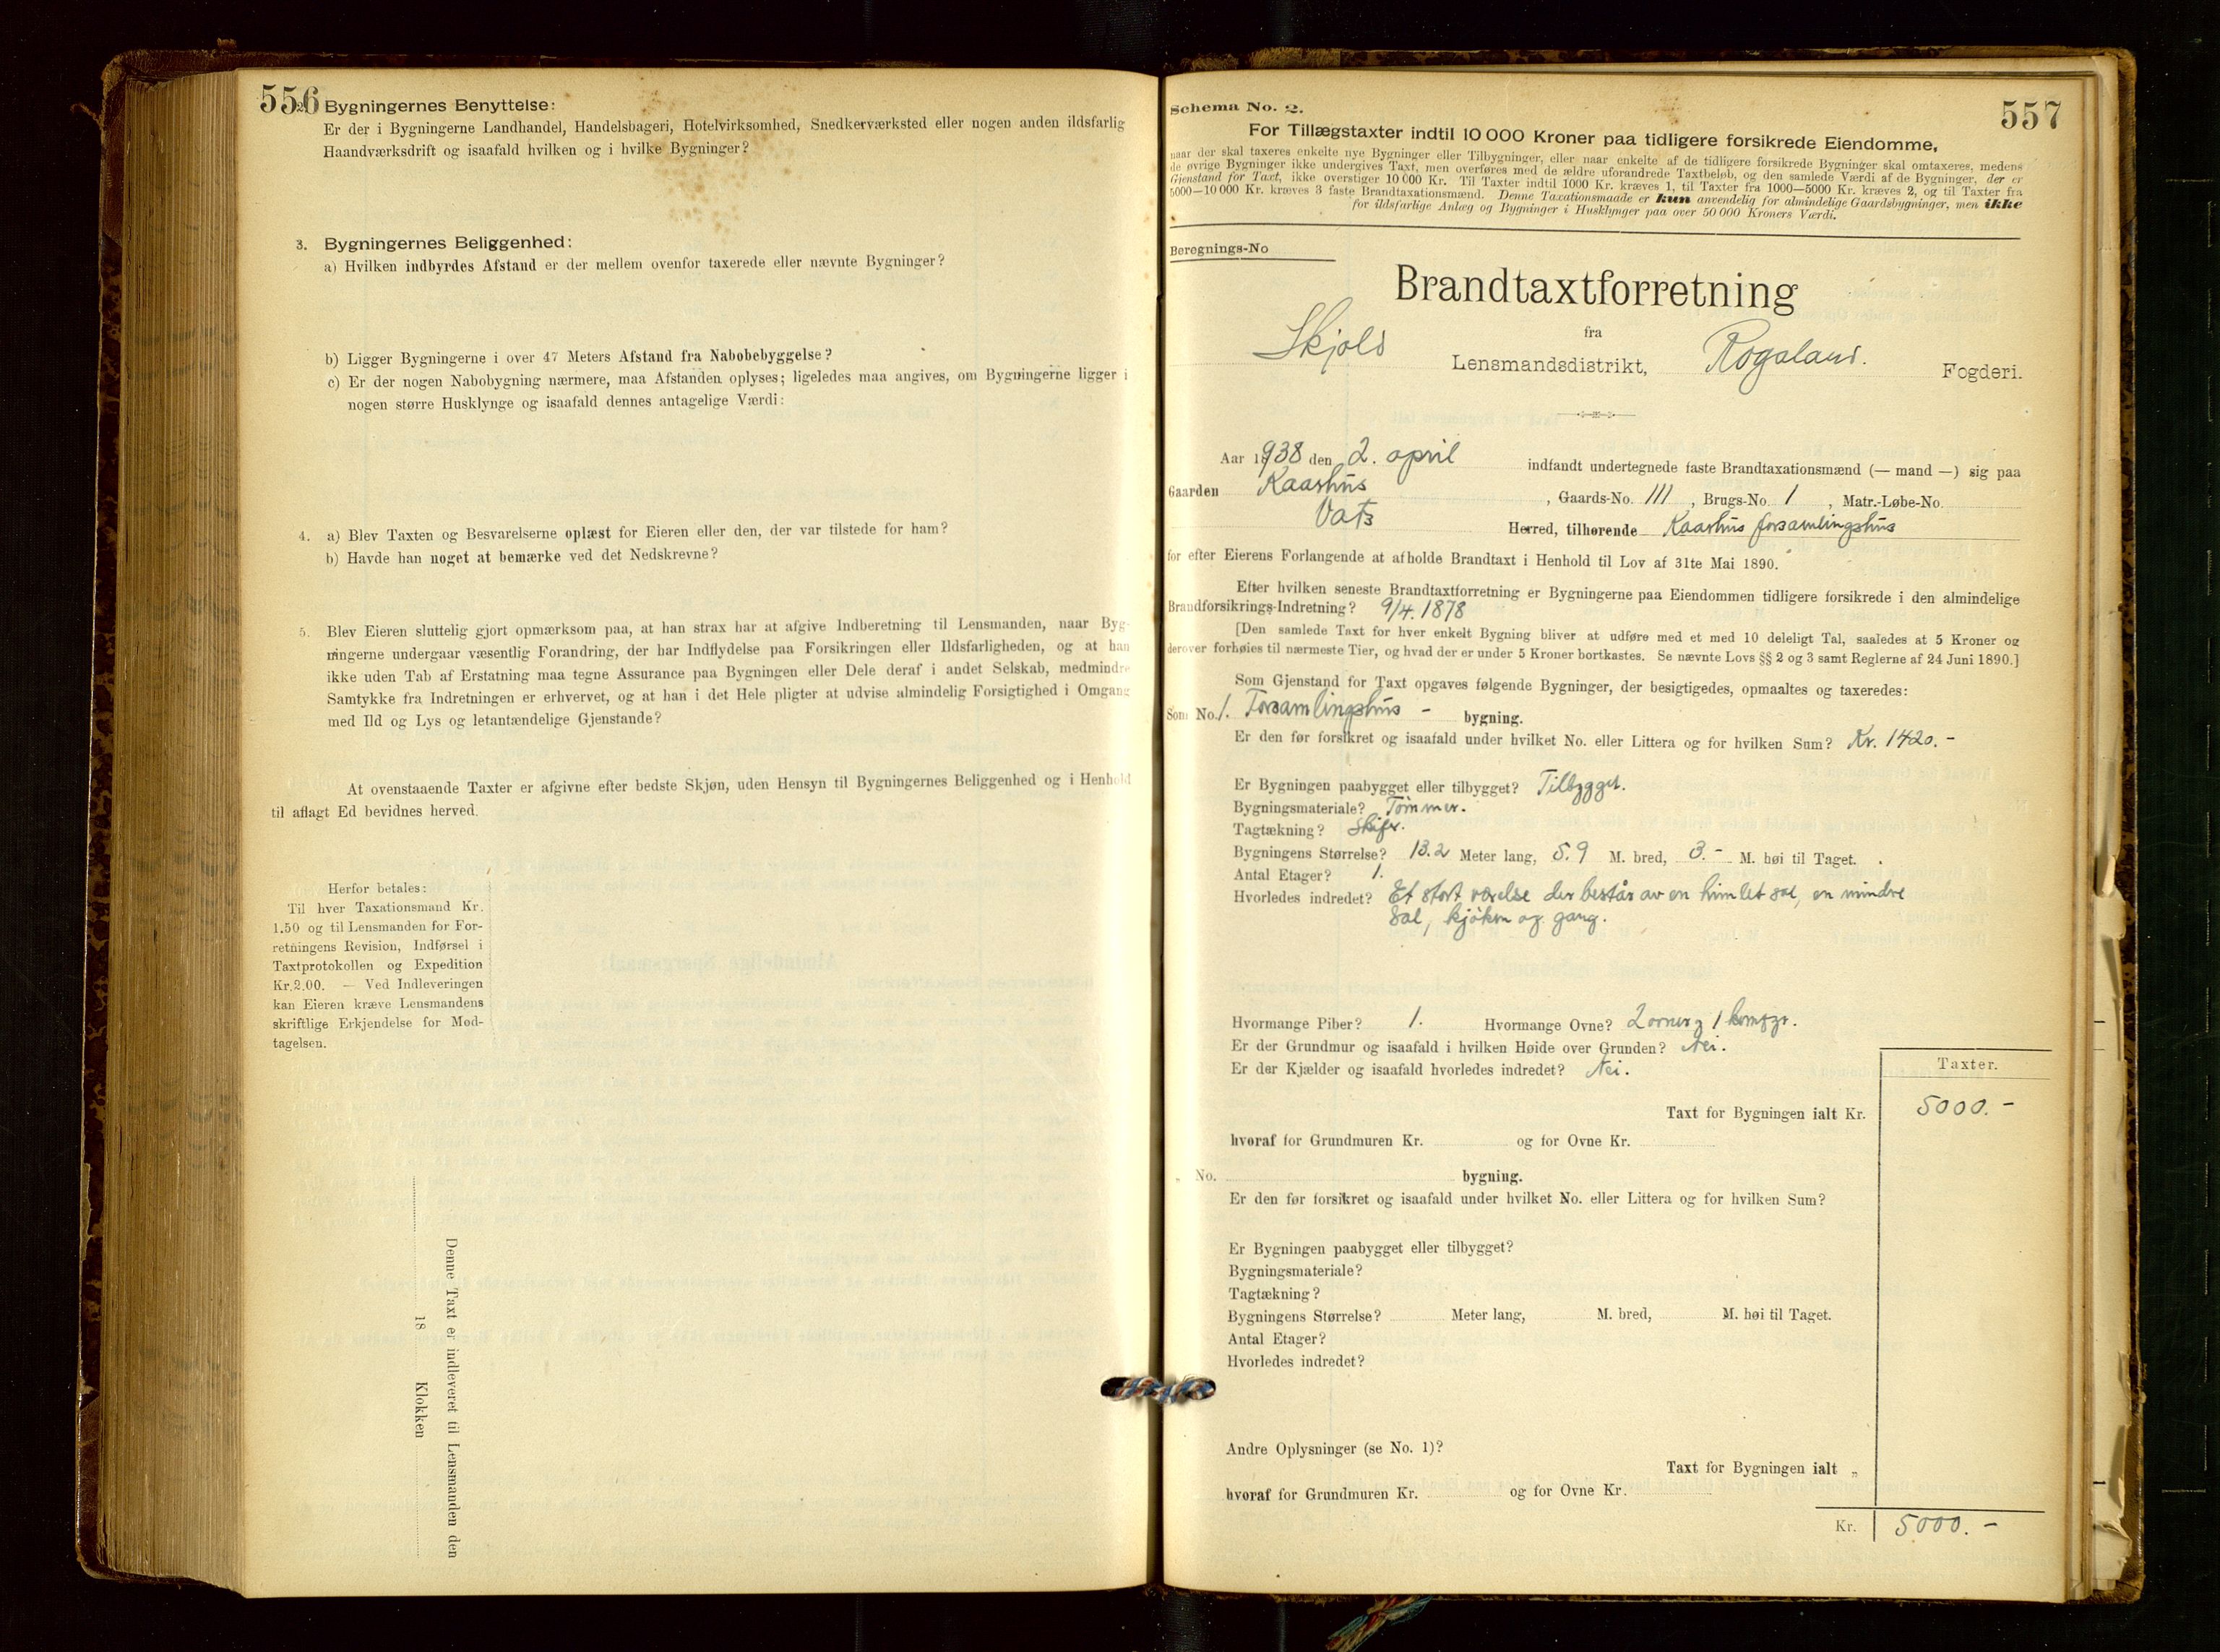 556
2. Bygningernes Benyttelse:
Er der i Bygningerne Landhandel, Handelsbageri, Hotelvirksomhed, Snedkerværksted eller nogen anden ildsfarlig
Haandværksdrift og isaafald hvilken og i hvilke Bygninger?
3. Bygningernes Beliggenhed:
a) Hvilken indbyrdes Afstand er der mellem ovenfor taxerede eller nævnte Bygninger?
b) Ligger Bygningerne i over 47 Meters Afstand fra Nabobebyggelse?
c) Er der nogen Nabobygning nærmere, maa Afstanden oplyses; ligeledes maa angives, om Bygningerne ligger i
nogen større Husklynge og isaafald dennes antagelige Værdi:
4. a) Blev Taxten og Besvarelserne oplæst for Eieren eller den, der var tilstede for ham?
b) Havde han noget at bemærke ved det Nedskrevne?
5. Blev Eieren sluttelig gjort opmærksom paa, at han strax har at afgive Indberetning til Lensmanden, naar Byg-
ningerne undergaar væsentlig Forandring, der har Indflydelse paa Forsikringen eller Ildsfarligheden, og at han
ikke uden Tab af Erstatning maa tegne Assurance paa Bygningen eller Dele deraf i andet Selskab, medmindre
Samtykke fra Indretningen er erhvervet, og at han i det Hele pligter at udvise almindelig Forsigtighed i Omgang
med Ild og Lys og letantændelige Gjenstande?
At ovenstaaende Taxter er afgivne efter bedste Skjøn, uden Hensyn til Bygningernes Beliggenhed og i Henhold
til aflagt Ed bevidnes herved.
Herfor betales:
Til hver Taxationsmand Kr.
1.50 og til Lensmanden for For-
retningens Revision, Indførsel i
Taxtprotokollen og Expedition
Kr.2.00. — Ved Indleveringen
kan Eieren kræve Lensmandens
skriftlige Erkjendelse for Mod-
tagelsen.
Denne Taxt er indleveret til Lensmanden den
18 Klokken
557
Schema No. 2.
For Tillægstaxter indtil 10 000 Kroner paa tidligere forsikrede Eiendomme,
naar der skal taxeres enkelte nye Bygninger eller Tilbygninger, eller naar enkelte af de tidligere forsikrede Bygninger skal omtaxeres, medens
de øvrige Bygninger ikke undergives Taxt, men overføres med de ældre uforandrede Taxtbeløb, og den samlede Værdi af de Bygninger, der er
Gjenstand for Taxt, ikke overstiger 10 000 Kr. Til Taxter indtil 1000 Kr. kræves 1, til Taxter fra 1000—5000 Kr. kræves 2, og til Taxter fra
5000—10 000 Kr. kræves 3 faste Brandtaxationsmænd. Denne Taxationsmaade er kun anvendelig for almindelige Gaardsbygninger, men ikke
for ildsfarlige Anlæg og Bygninger i Husklynger paa over 50 000 Kroners Værdi.
Beregnings-No
Brandtaxtforretning
fra
Skjold Lensmandsdistrikt, Rogaland. Fogderi.
Aar 1938 den 2. april indfandt undertegnede faste Brandtaxationsmænd (— mand —) sig paa
Gaarden Kaarhus, Gaards-No. 111, Brugs-No. 1, Matr.-Løbe-No.
Vats Herred, tilhørende Kaarhus forsamlingshus
for efter Eierens Forlangende at afholde Brandtaxt i Henhold til Lov af 31te Mai 1890.
Efter hvilken seneste Brandtaxtforretning er Bygningerne paa Eiendommen tidligere forsikrede i den almindelige
Brandforsikrings-Indretning? 9/4. 1878
[Den samlede Taxt for hver enkelt Bygning bliver at udføre med et med 10 deleligt Tal, saaledes at 5 Kroner og
derover forhøies til nærmeste Tier, og hvad der er under 5 Kroner bortkastes. Se nævnte Lovs §§ 2 og 3 samt Reglerne af 24 Juni 1890.]
Som Gjenstand for Taxt opgaves følgende Bygninger, der besigtigedes, opmaaltes og taxeredes:
Som No. 1. Forsamlingshus - bygning.
Er den før forsikret og isaafald under hvilket No. eller Littera og for hvilken Sum? Kr. 1420.-
Er Bygningen paabygget eller tilbygget? Tilbygget.
Bygningsmateriale? Tømmer.
Tagtækning? Skifer.
Bygningens Størrelse? 13.2 Meter lang, 5.9 M. bred, 3.- M. høi til Taget.
Antal Etager? 1.
Hvorledes indredet? Et stort værelse der består av en himlet sal, en mindre
sal, kjøken og gang.
Hvormange Piber? 1. Hvormange Ovne? 2 ovner og 1 komfyr.
Er der Grundmur og isaafald i hvilken Høide over Grunden? Nei.
Er der Kjælder og isaafald hvorledes indredet? Nei.
Taxter.
Taxt for Bygningen ialt Kr. 5000.-
hvoraf for Grundmuren Kr. og for Ovne Kr.
" No. bygning.
Er den før forsikret og isaafald under hvilket No. eller Littera og for hvilken Sum?
Er Bygningen paabygget eller tilbygget?
Bygningsmateriale?
Tagtækning?
Bygningens Størrelse? Meter lang, M. bred, M. høi til Taget.
Antal Etager?
Hvorledes indredet?
Andre Oplysninger (se No. 1)?
Taxt for Bygningen ialt "
hvoraf for Grundmuren Kr. og for Ovne Kr.
Kr. 5000.-